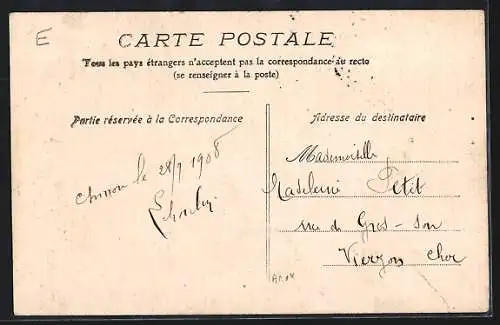 E
CARTE POSTALE
Tous les pays étrangers n'acceptent pas la correspondance au recto
(se renseigner à la poste)
Partie réservée à la Correspondance
Adresse du destinataire
Chinon le 28/7 1908
Mademoiselle
Madeleine Petit
rue de Gros-Son
Vierzon Cher